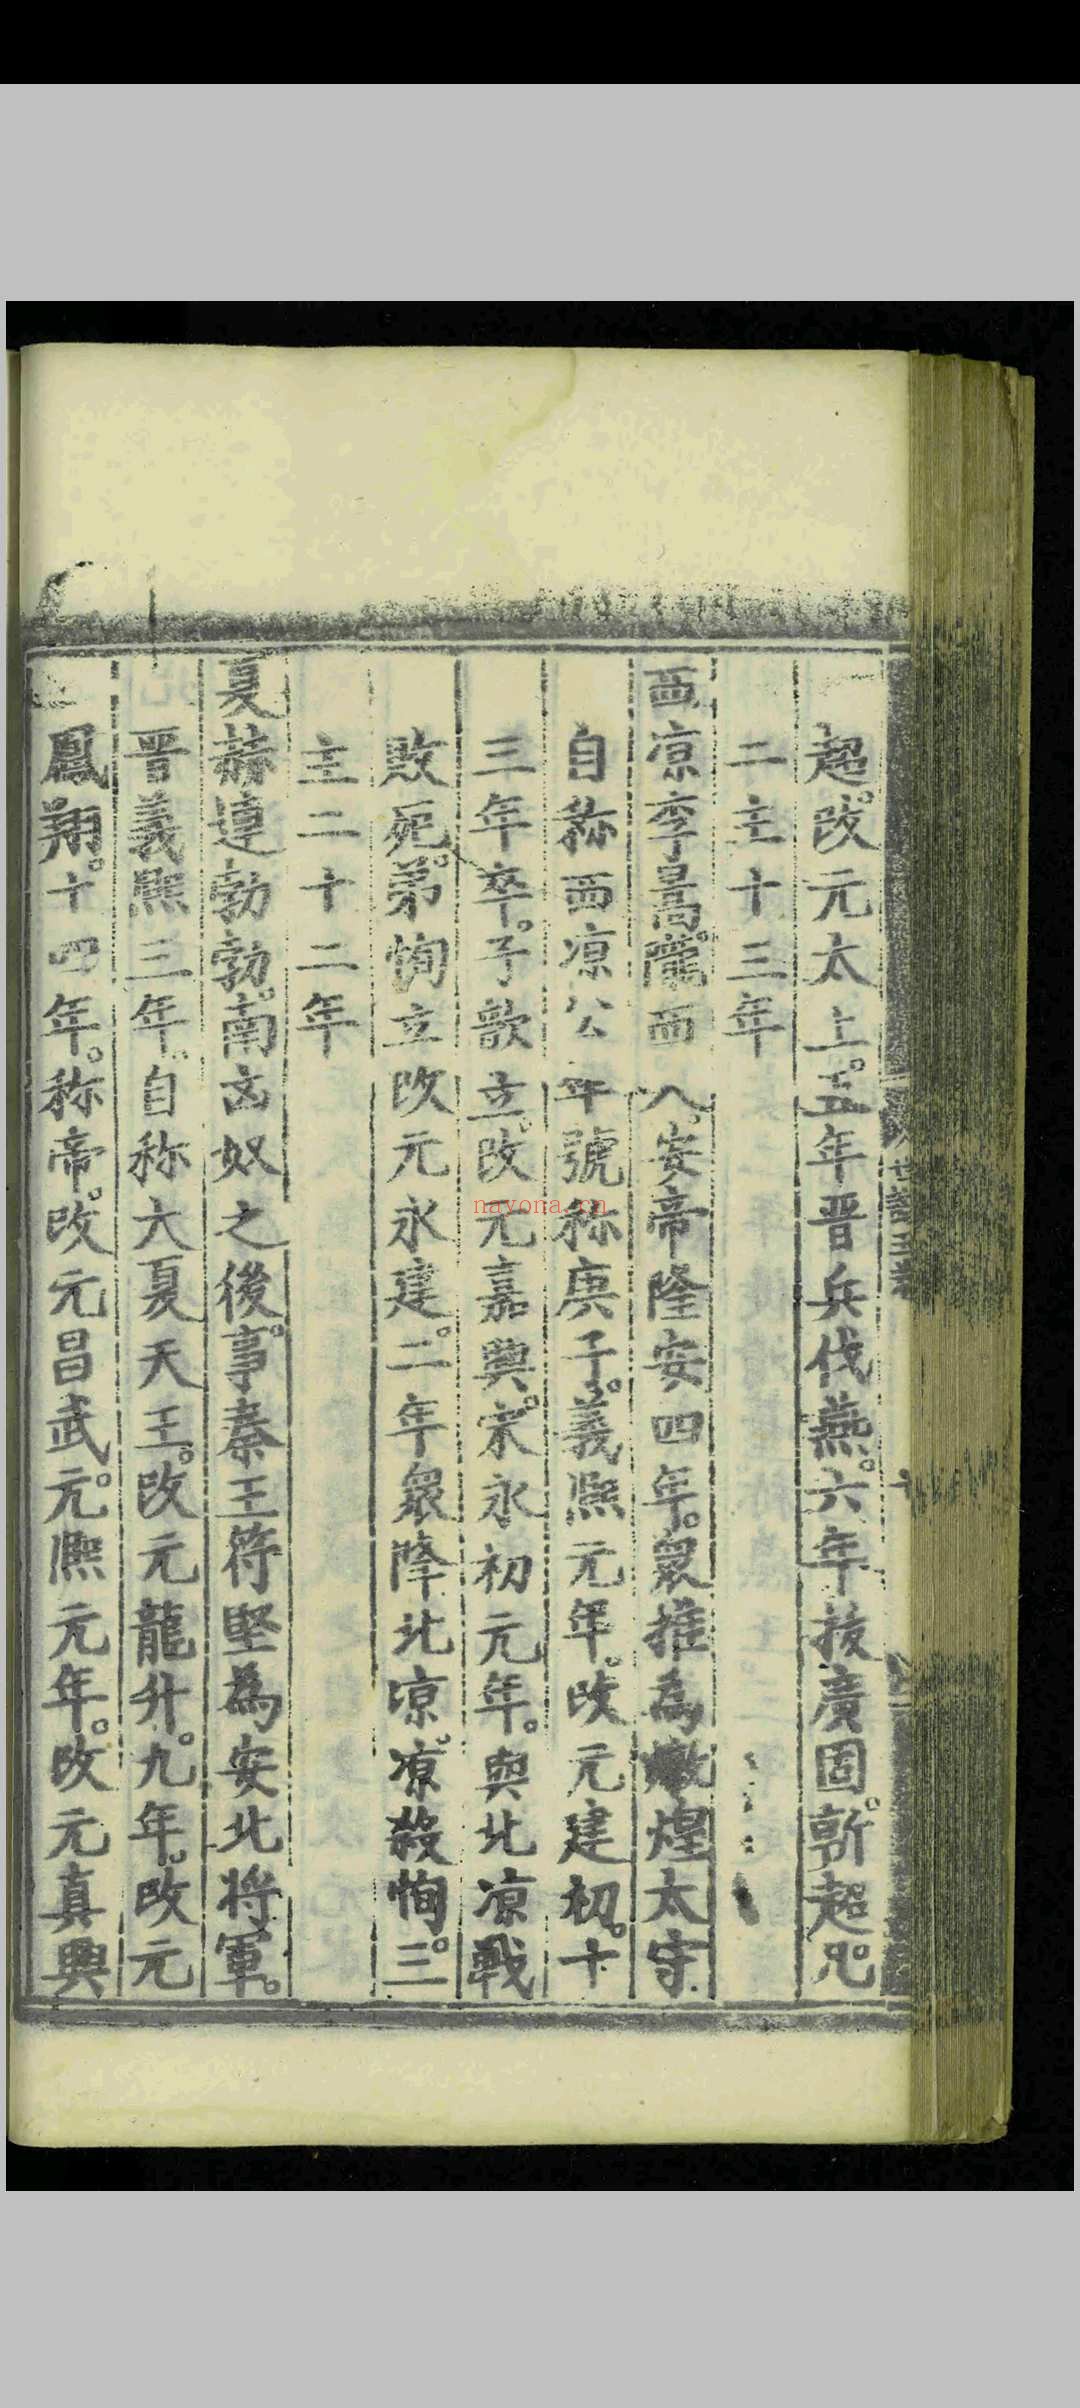 超。改元太上。五年晋兵伐燕。六年拔廣固。斬超。凡
二主十三年
西凉李暠。隴西人。安帝隆安四年。衆推為燉煌太守
自称西凉公年號称庚子。義熈元年。改元建初。十
三年卒。子歆立。改元嘉興。宋永初元年。與北凉戰
敗死。弟恂立改元永建。二年衆降北凉。凉殺恂。三
主二十二年
夏赫連勃勃。南匈奴之後。事秦王符堅為安北将軍。
晋義熈三年。自称大夏天王。改元龍升。九年。改元
鳳翔。十四年。称帝。改元昌武。元熈元年。改元真興
nayona.cn